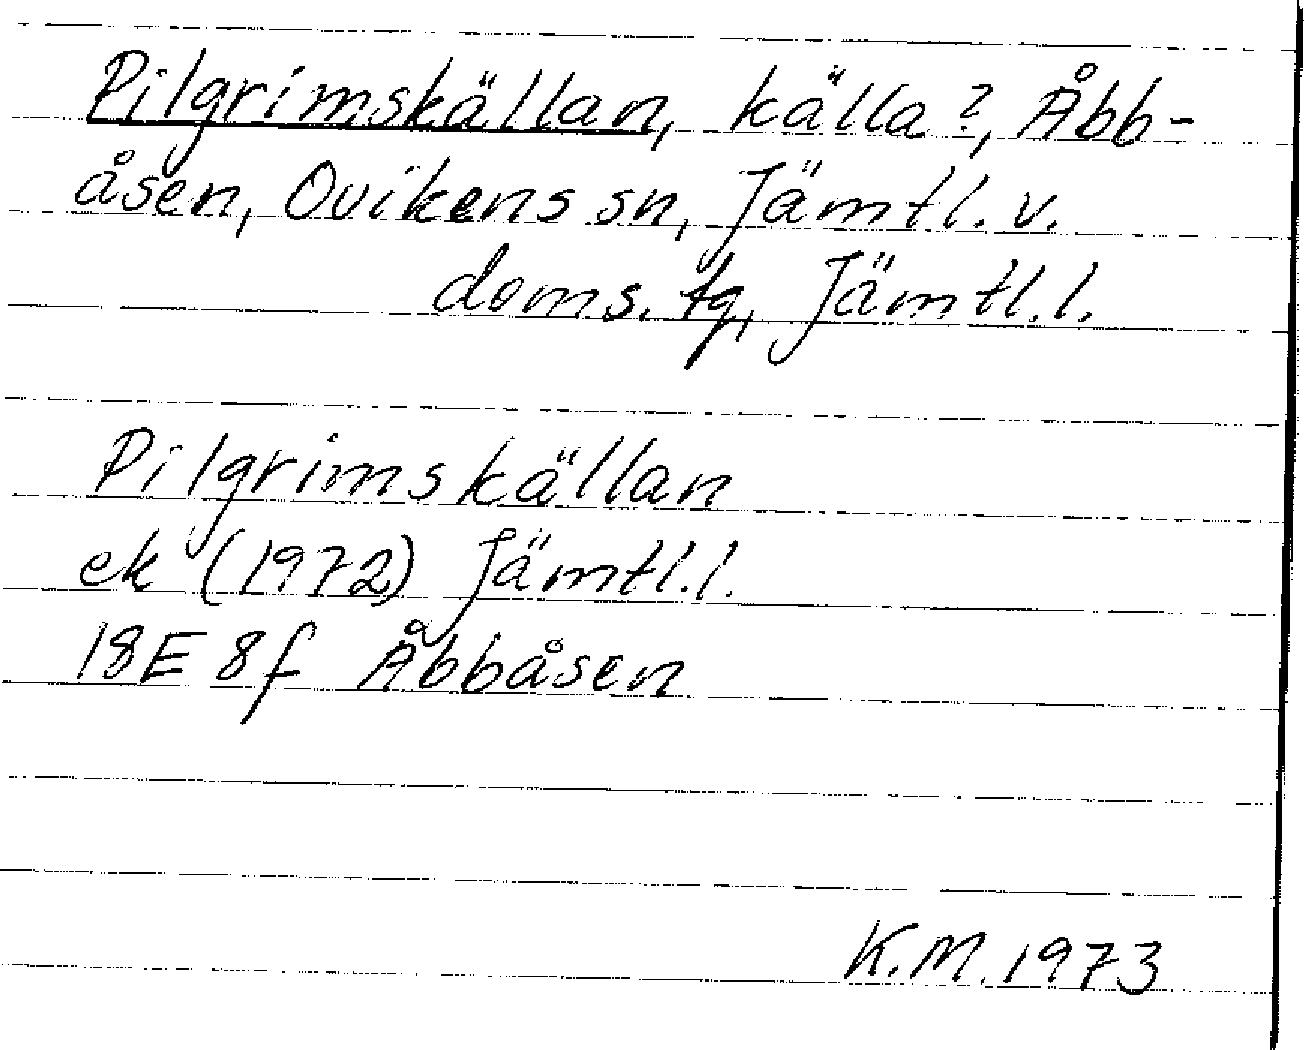 Pilgrimskällan, källa?, Åbb-
åsen, Ovikens sn, Jämtl. v.
doms. tg, Jämtl. l.
Pilgrimskällan
ek (1972) Jämtl. l.
18E 8f Åbbåsen
K.M. 1973